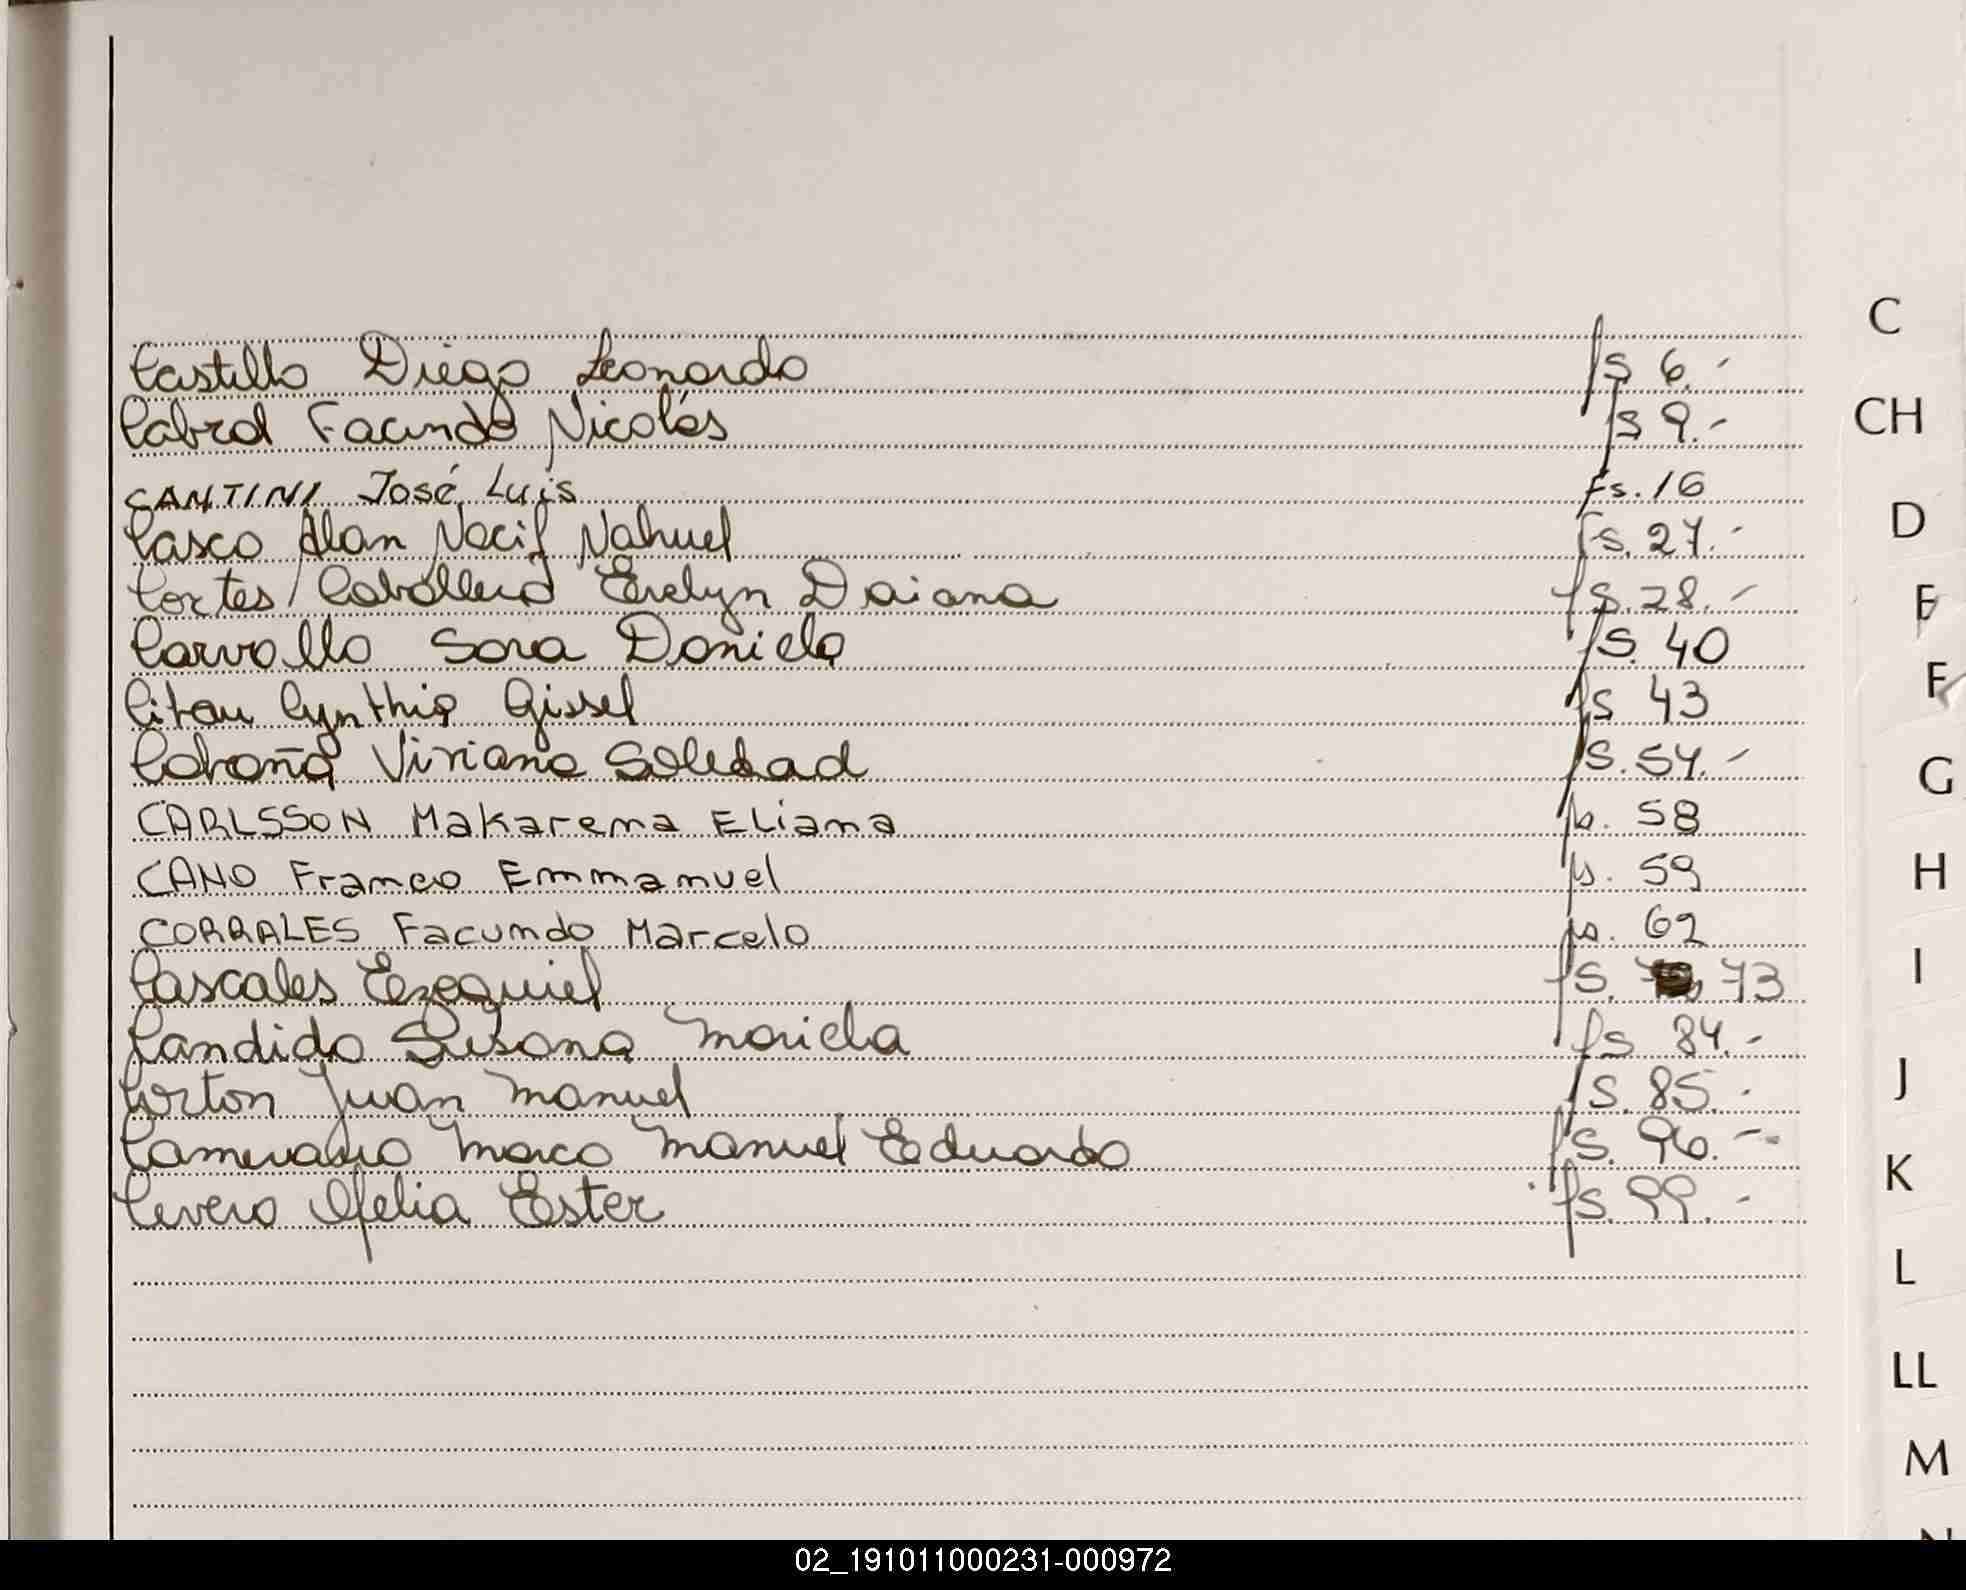 Castillo Diego Leonardo fs 6.-
Cabral Facundo Nicolás fs 9.-
SANTINI José Luis fs. 16
Casco Alan Nacif Nahuel fs. 27.-
Cortes / Caballero Evelyn Daiana fs. 28.-
Carvallo Sara Daniela fs. 40
Citau Cynthia Gissel fs 43
Cabaña Viviana Soledad fs. 54.-
CARLSSON Makarena Eliana fs. 58
CANO Franco Emmanuel fs. 59
CORRALES Facundo Marcelo fs. 62
Cascales Ezequiel fs. 73
Candido Susana Mariela fs 84.-
Corton Juan Manuel fs. 85.-
Marco Manuel Eduardo fs. 96.-
Cevero Ofelia Ester fs. 99.-
C
CH
D
E
F
G
H
I
J
K
L
LL
M
N
02_191011000231-000972